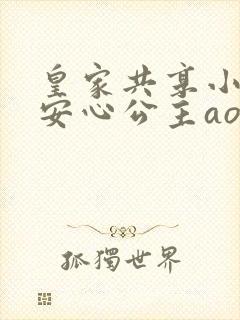 皇家共享小
安心公主ao
孤獨世界